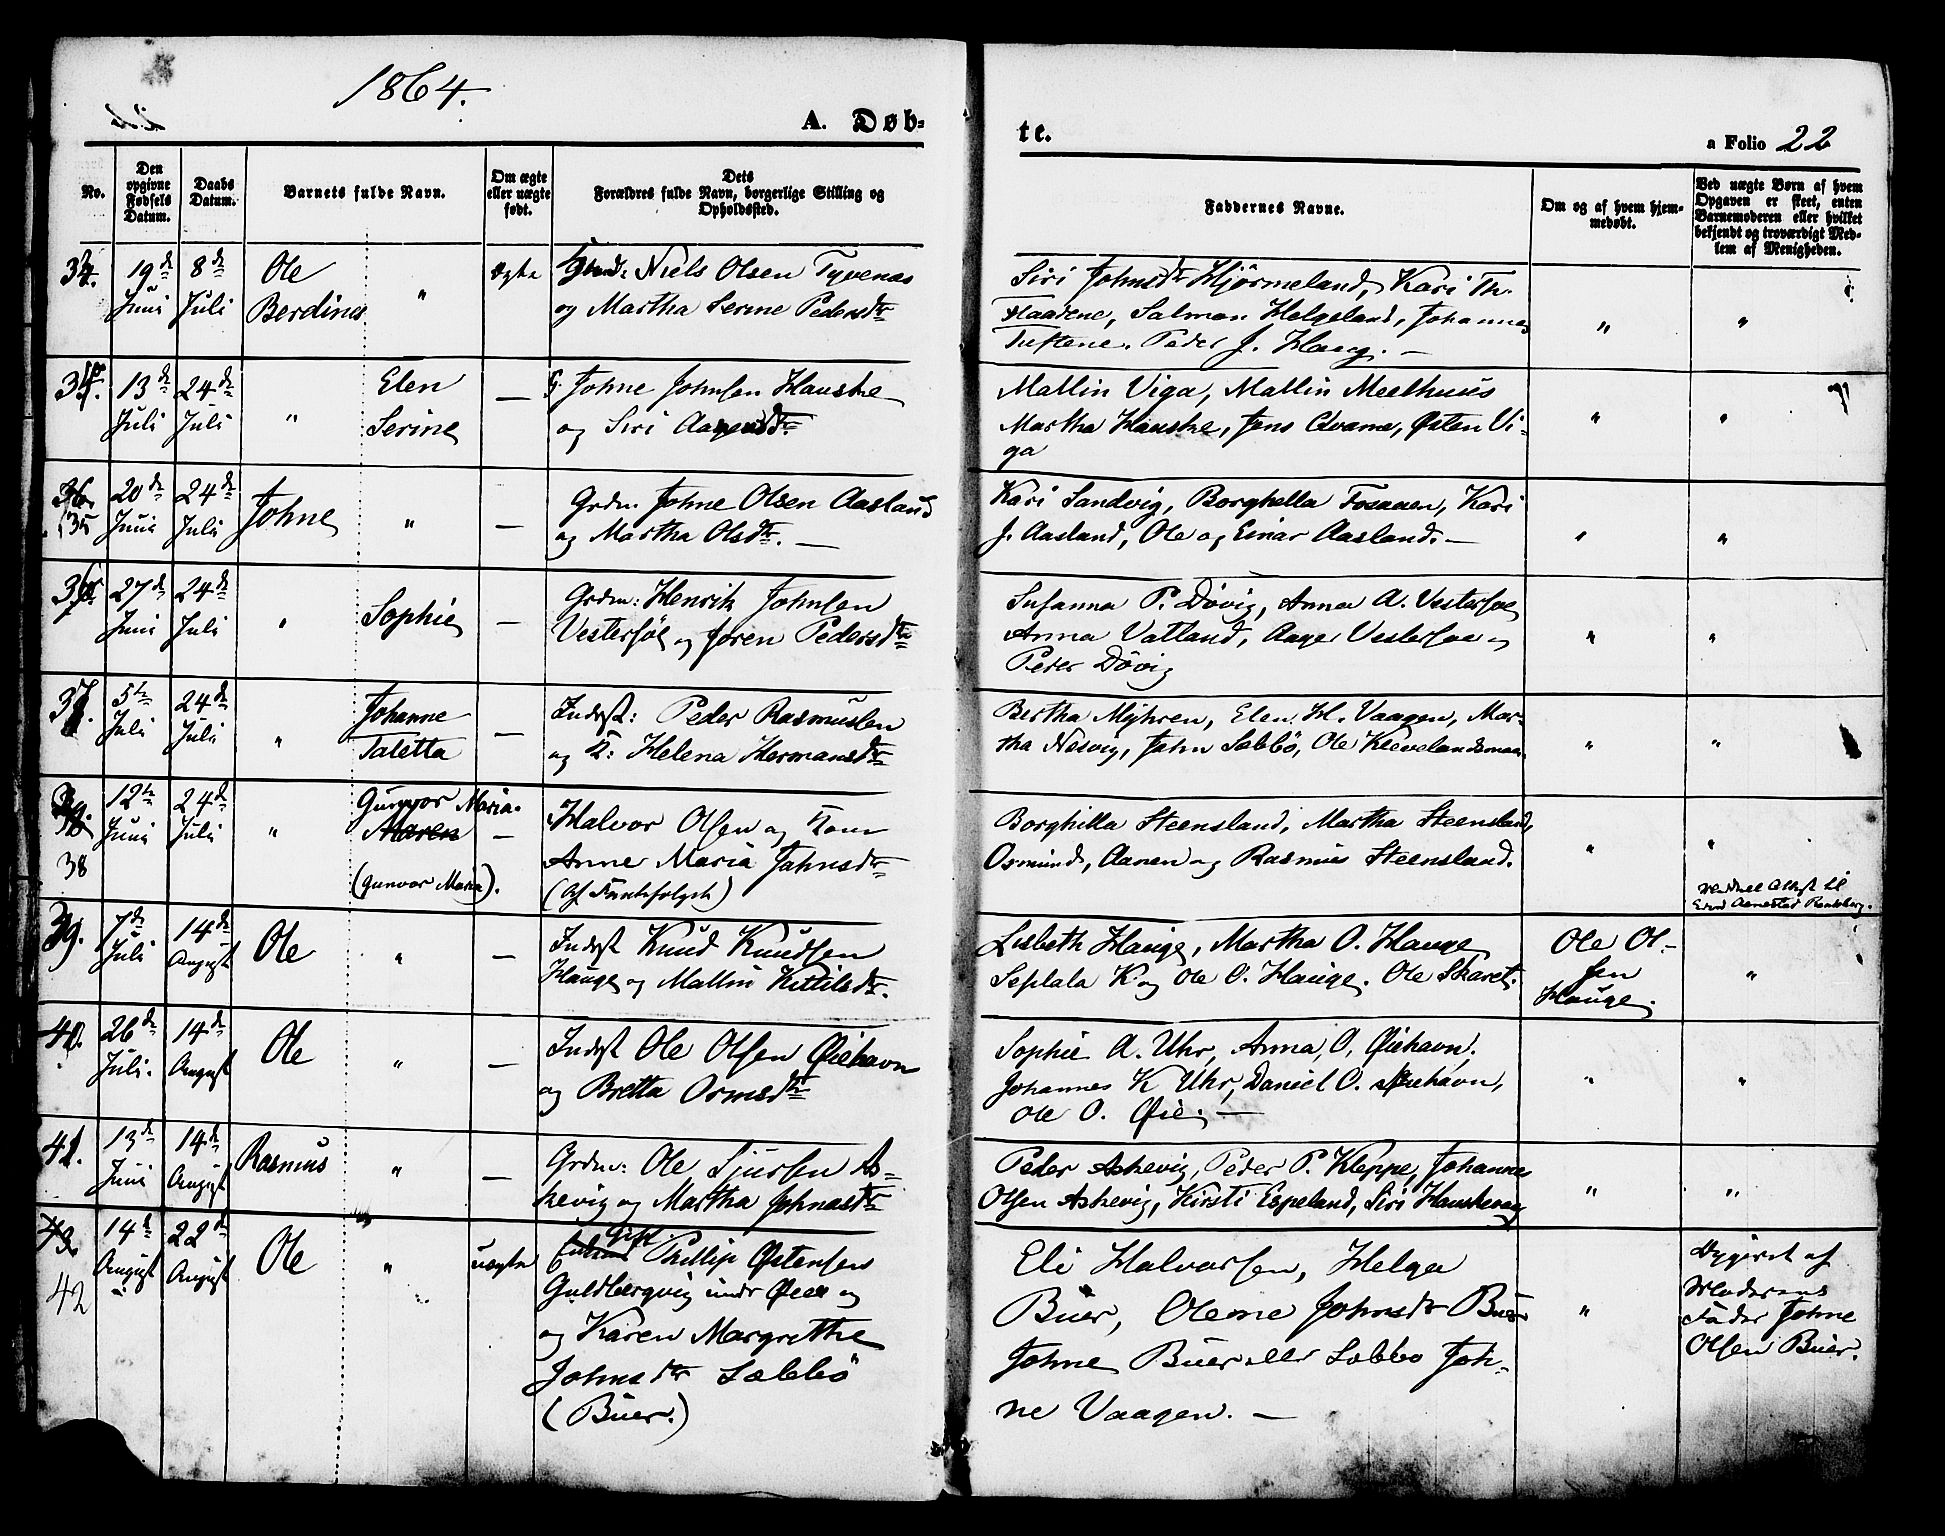 1864.
A. Døb-
te.
a Folio 22
No.
Den opgivne Fødsels Datum.
Daabs Datum.
Barnets fulde Navn.
Om ægte eller uægte født.
Dets Forældres fulde Navn, borgerlige Stilling og Opholdssted.
Faddernes Navne.
Om og af hvem hjem-
medøbt.
Ved uægte Børn af hvem
Opgaven er skeet, enten
Barnemoderen eller hvilket
bekjendt og troværdigt Med-
lem af Menigheden.
34. 19de Juni 8de Juli
Ole Berdines " ægte
Niels Olsen Tyvenas
og Martha Serine Pedersdtr
Siri Johnsdtr Hjörmeland, Kari Th.
Flaadene, Salmon Helgeland, Johannes
Tuftene. Peder J. Haug. —
" "
13de Juli 24de Juli
" Elen Serine —
G. Johne Johnsen Hauske
og Siri Aanensdtr.
Mallin Viga, Mallin Meelhuus
Martha Hauske, Jens Qvame, Østen Vi-
ga
" "
36. 35 20de Juni 24de Juli
Johne " —
Grdm. Johne Olsen Aasland
og Martha Olsdtr. —
Kari Sandvig, Borghella Fosaaen, Kari
J. Aasland, Ole og Einar Aasland. —
" "
36 27de Juni 24de Juli
" Sophie —
Grdm: Henrik Johnsen
Vestersöe og Joren Pedersdtr
Susanna P. Dövig, Anna A. Vestersoe
Anna Vatland, Aage Vestersoe og
Peder Dövig
" "
37. 5te Juli 24de Juli
" Johanne Taletta —
Inderst: Peder Rasmussen
og K: Helena Hermansdtr
Bertha Myhren, Elen H. Vaagen, Mar-
tha Nesvig, John Sæbbö, Ole Klevelandsmoen
" "
38 12te Juni 24de Juli
" Gunvor Maria.
Maren —
(Gunvor Maria).
Halvor Olsen og Kone
Anne Maria Johnsdtr
(Af Fantefølget)
Borghilla Steensland, Martha Steensland,
Osmund, Aanen og Rasmus Steensland.
" "
Meddeel Attest til
39. 7de Juli 14de August
Ole " —
Inderst Knud Knudsen
Hauge og Mallin Kittilsdtr.
Lisbeth Hauge, Martha O. Hauge
K. og Ole O. Hauge. Ole Skaret.
Ole Ol-
sen
Hauge.
"
40. 26de Juli. 14de August
Ole " —
Inderst Ole Olsen Øiehavn
og Bretta Ormsdtr
Sophie A. Uhr, Anna O. Øiehavn,
Johannes K Uhr, Daniel O. Øiehavn,
Ole O. Øie. —
" "
41. 13de Juni 14de August
Rasmus " —
Grdm: Ole Sjursen As-
kevig og Martha Johnasdtr
Peder Askevig, Peder P. Kleppe, Johannes
Olsen Askevig, Kirsti Espeland, Siri Hauskevaag
" "
43. 42 14de August 22de August
Ole " uægte
Gift Phillip Østensen
Guldbergvig under Øiee og
og Karen Margrethe
Johnsdtr Sæbbö
(Buer.)
Eli Halvorsen, Helga
Buer, Olene Johnsdtr Buer
Johne Buer eller Sæbbo Joh-
ne Vaagen. —
"
Opgivet af
Moderens
Fader Johne
Olsen Buer.